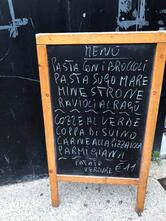 MENÙ
PASTA CON I BROCCOLI
PASTA SUGO MARE
MINESTRONE
RAVIOLI AL RAGÙ
COZZE AL VERDE
COPPA DI SUINO
CARNE ALLA PIZZAIOLA
PARMIGIANA
PATATE
VERDURE €11